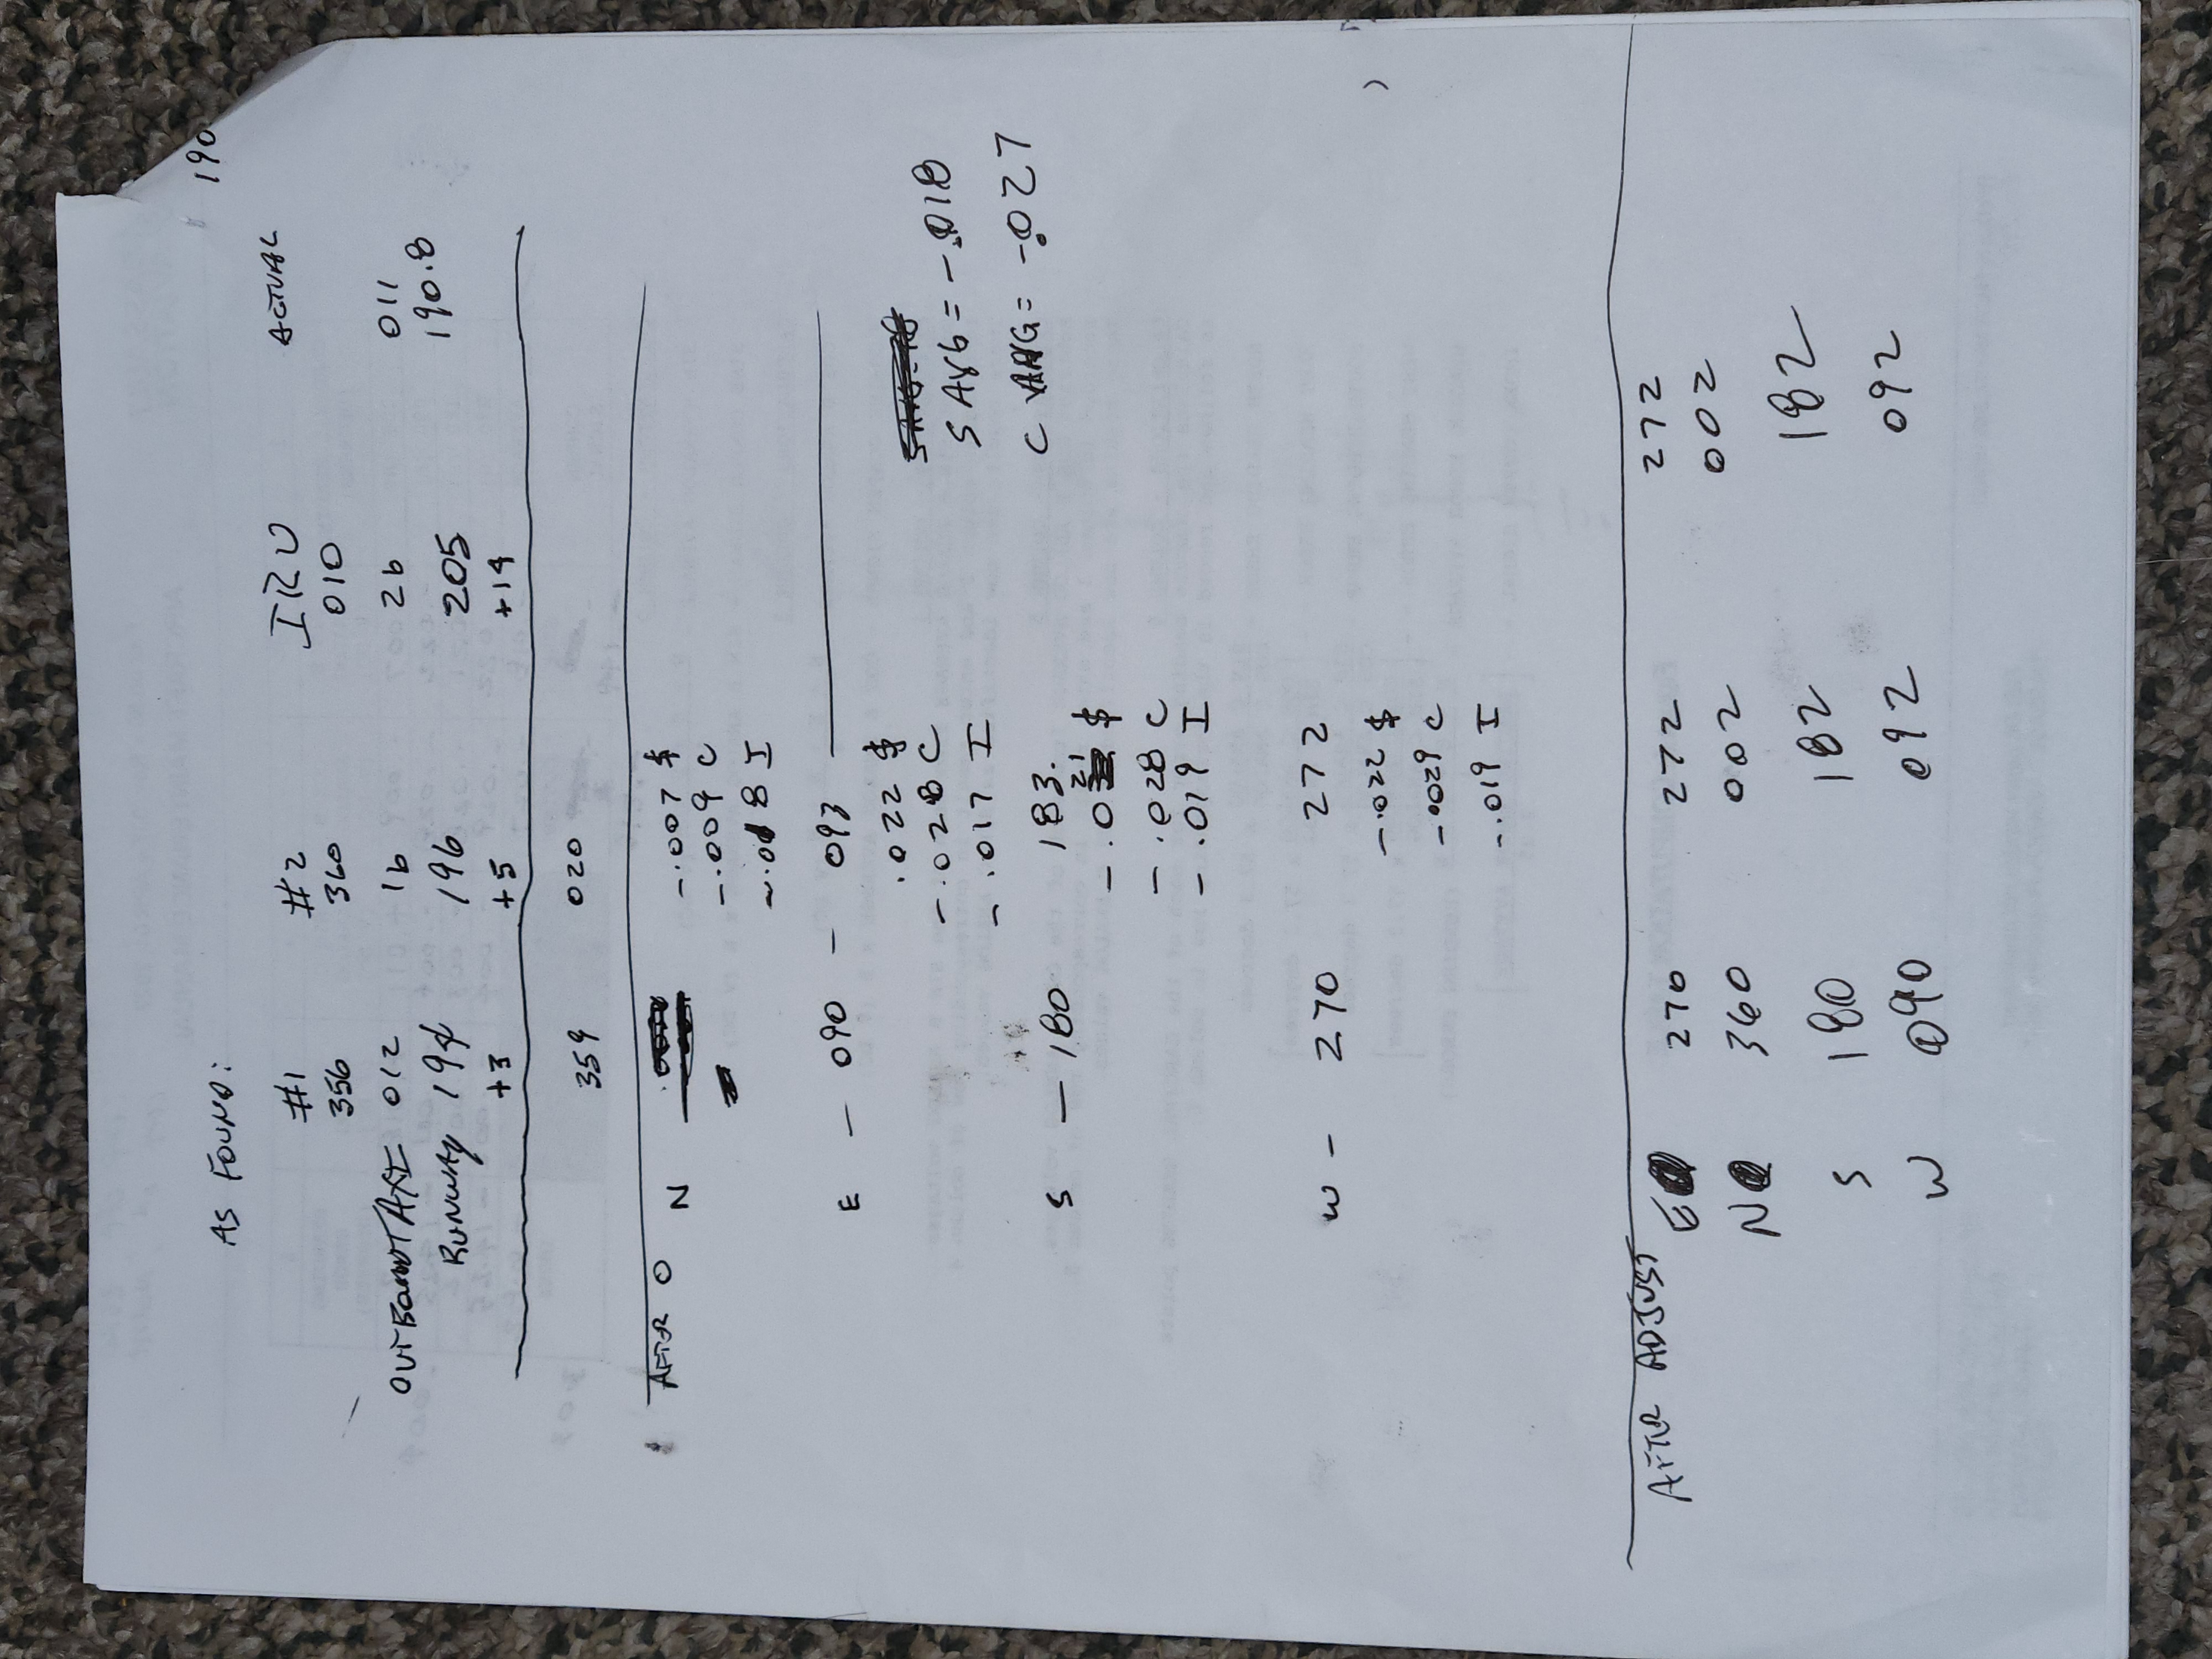 190
AS FOUND:
#1 #2 IRU ACTUAL
356 360 010
OUTBOUND TAXI 012 16 26 011
RUNWAY 194 196 205 190.8
+3 +5 +14
359 020
AFTR O N -.007 $
-.009 C
-.018 I
E - 090 - 093
.022 $
-.028 C
-.017 I
S AVG = -.018
C AVG = -.027
S - 180 183.
-.021 $
-.028 C
-.019 I
W - 270 272
-.022 $
-.0029 C
-.019 I
AFTER ADJUST E 270 272 272
N 360 002 002
S 180 182 182
W 090 092 092